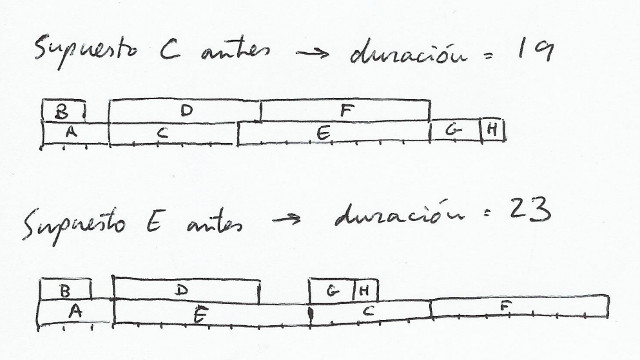 Supuesto C antes → duración = 19
B D F
A C E G H
Supuesto E antes → duración = 23
B D G H
A E C F